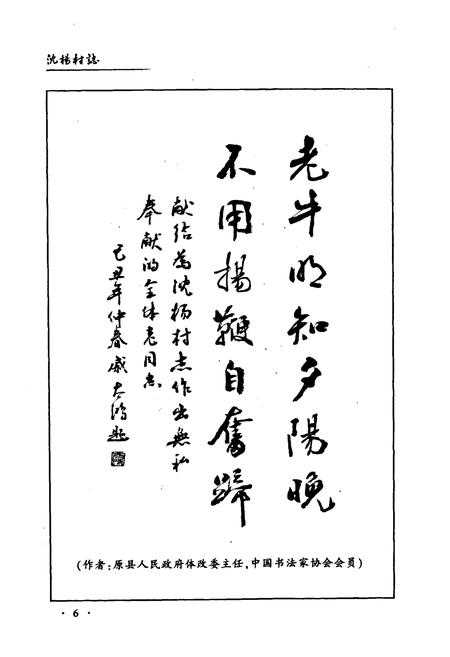 沈楊村誌
老牛明知夕陽晚
不用揚鞭自奮蹄
献给為沈杨村志作出無私
奉献的全体老同志
己丑年仲春戚大鸿題
(作者:原县人民政府体改委主任,中国书法家协会会员)
·6·